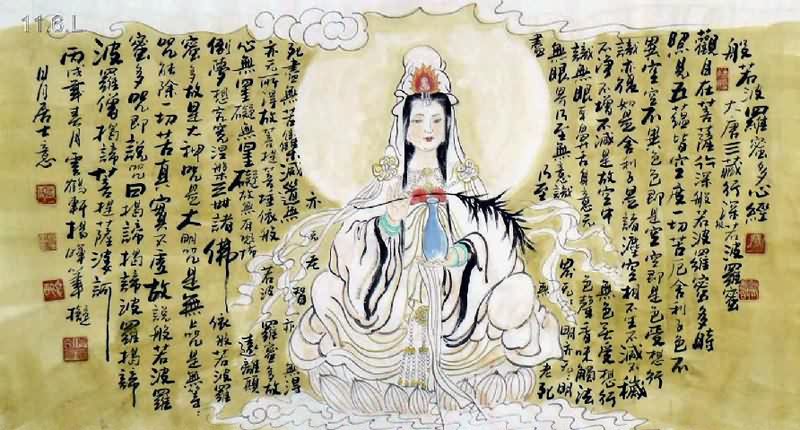 11.6.L
般若波羅蜜多心經
大唐三藏行深若波羅蜜
觀自在菩薩行深般若波羅蜜多時
照見五蘊皆空度一切苦厄舍利子色不
異空空不異色色即是空空即是色受想行
識亦復如是舍利子是諸法空相不生不滅不穢
不淨不增不減是故空中無色無受想行
識無眼耳鼻舌身意无色聲香味觸法
無眼界乃至無意識界无無明亦无明
盡乃至無老死
亦无老
死盡無苦集滅道無智亦無得
亦无所得故菩提薩埵依般若波羅蜜多故
心無罣礙無罣礙故無有恐怖遠離顛
倒夢想究竟涅槃三世諸佛依般若波羅
蜜多故是大神咒是大明咒是無上咒是無等
咒能除一切苦真實不虛故說般若波羅
蜜多咒即說咒曰揭諦揭諦波羅揭諦
波羅僧揭諦菩提薩婆訶
丙戌年春月雲鶴軒楊
日月居士意